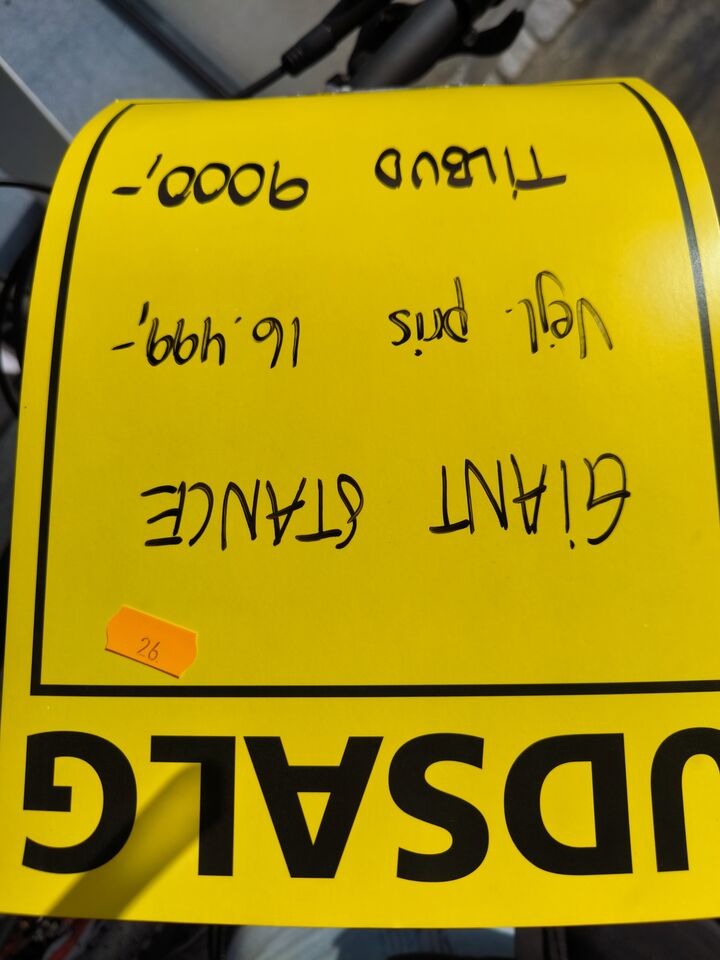 UDSALG
26
GIANT STANCE
Vejl. pris 16.499,-
TILBUD 9000,-